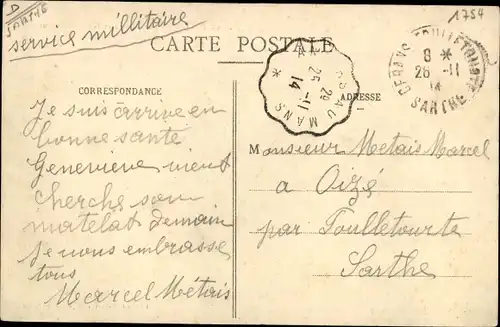 D
SARTHE
service millitaire
1754
CARTE POSTALE
CORRESPONDANCE
ADRESSE
AU MANS
29
25 -11
14
*
CERANS FOULLETOURTE
8 *
26 -11
14
SARTHE
Je suis arrive en
bonne santé
Genevieve vient
cherche son
matelat demain
je vous embrasse
tous
Marcel Métais
Monsieur Metais Marcel
a Oizé
par Foulletourte
Sarthe